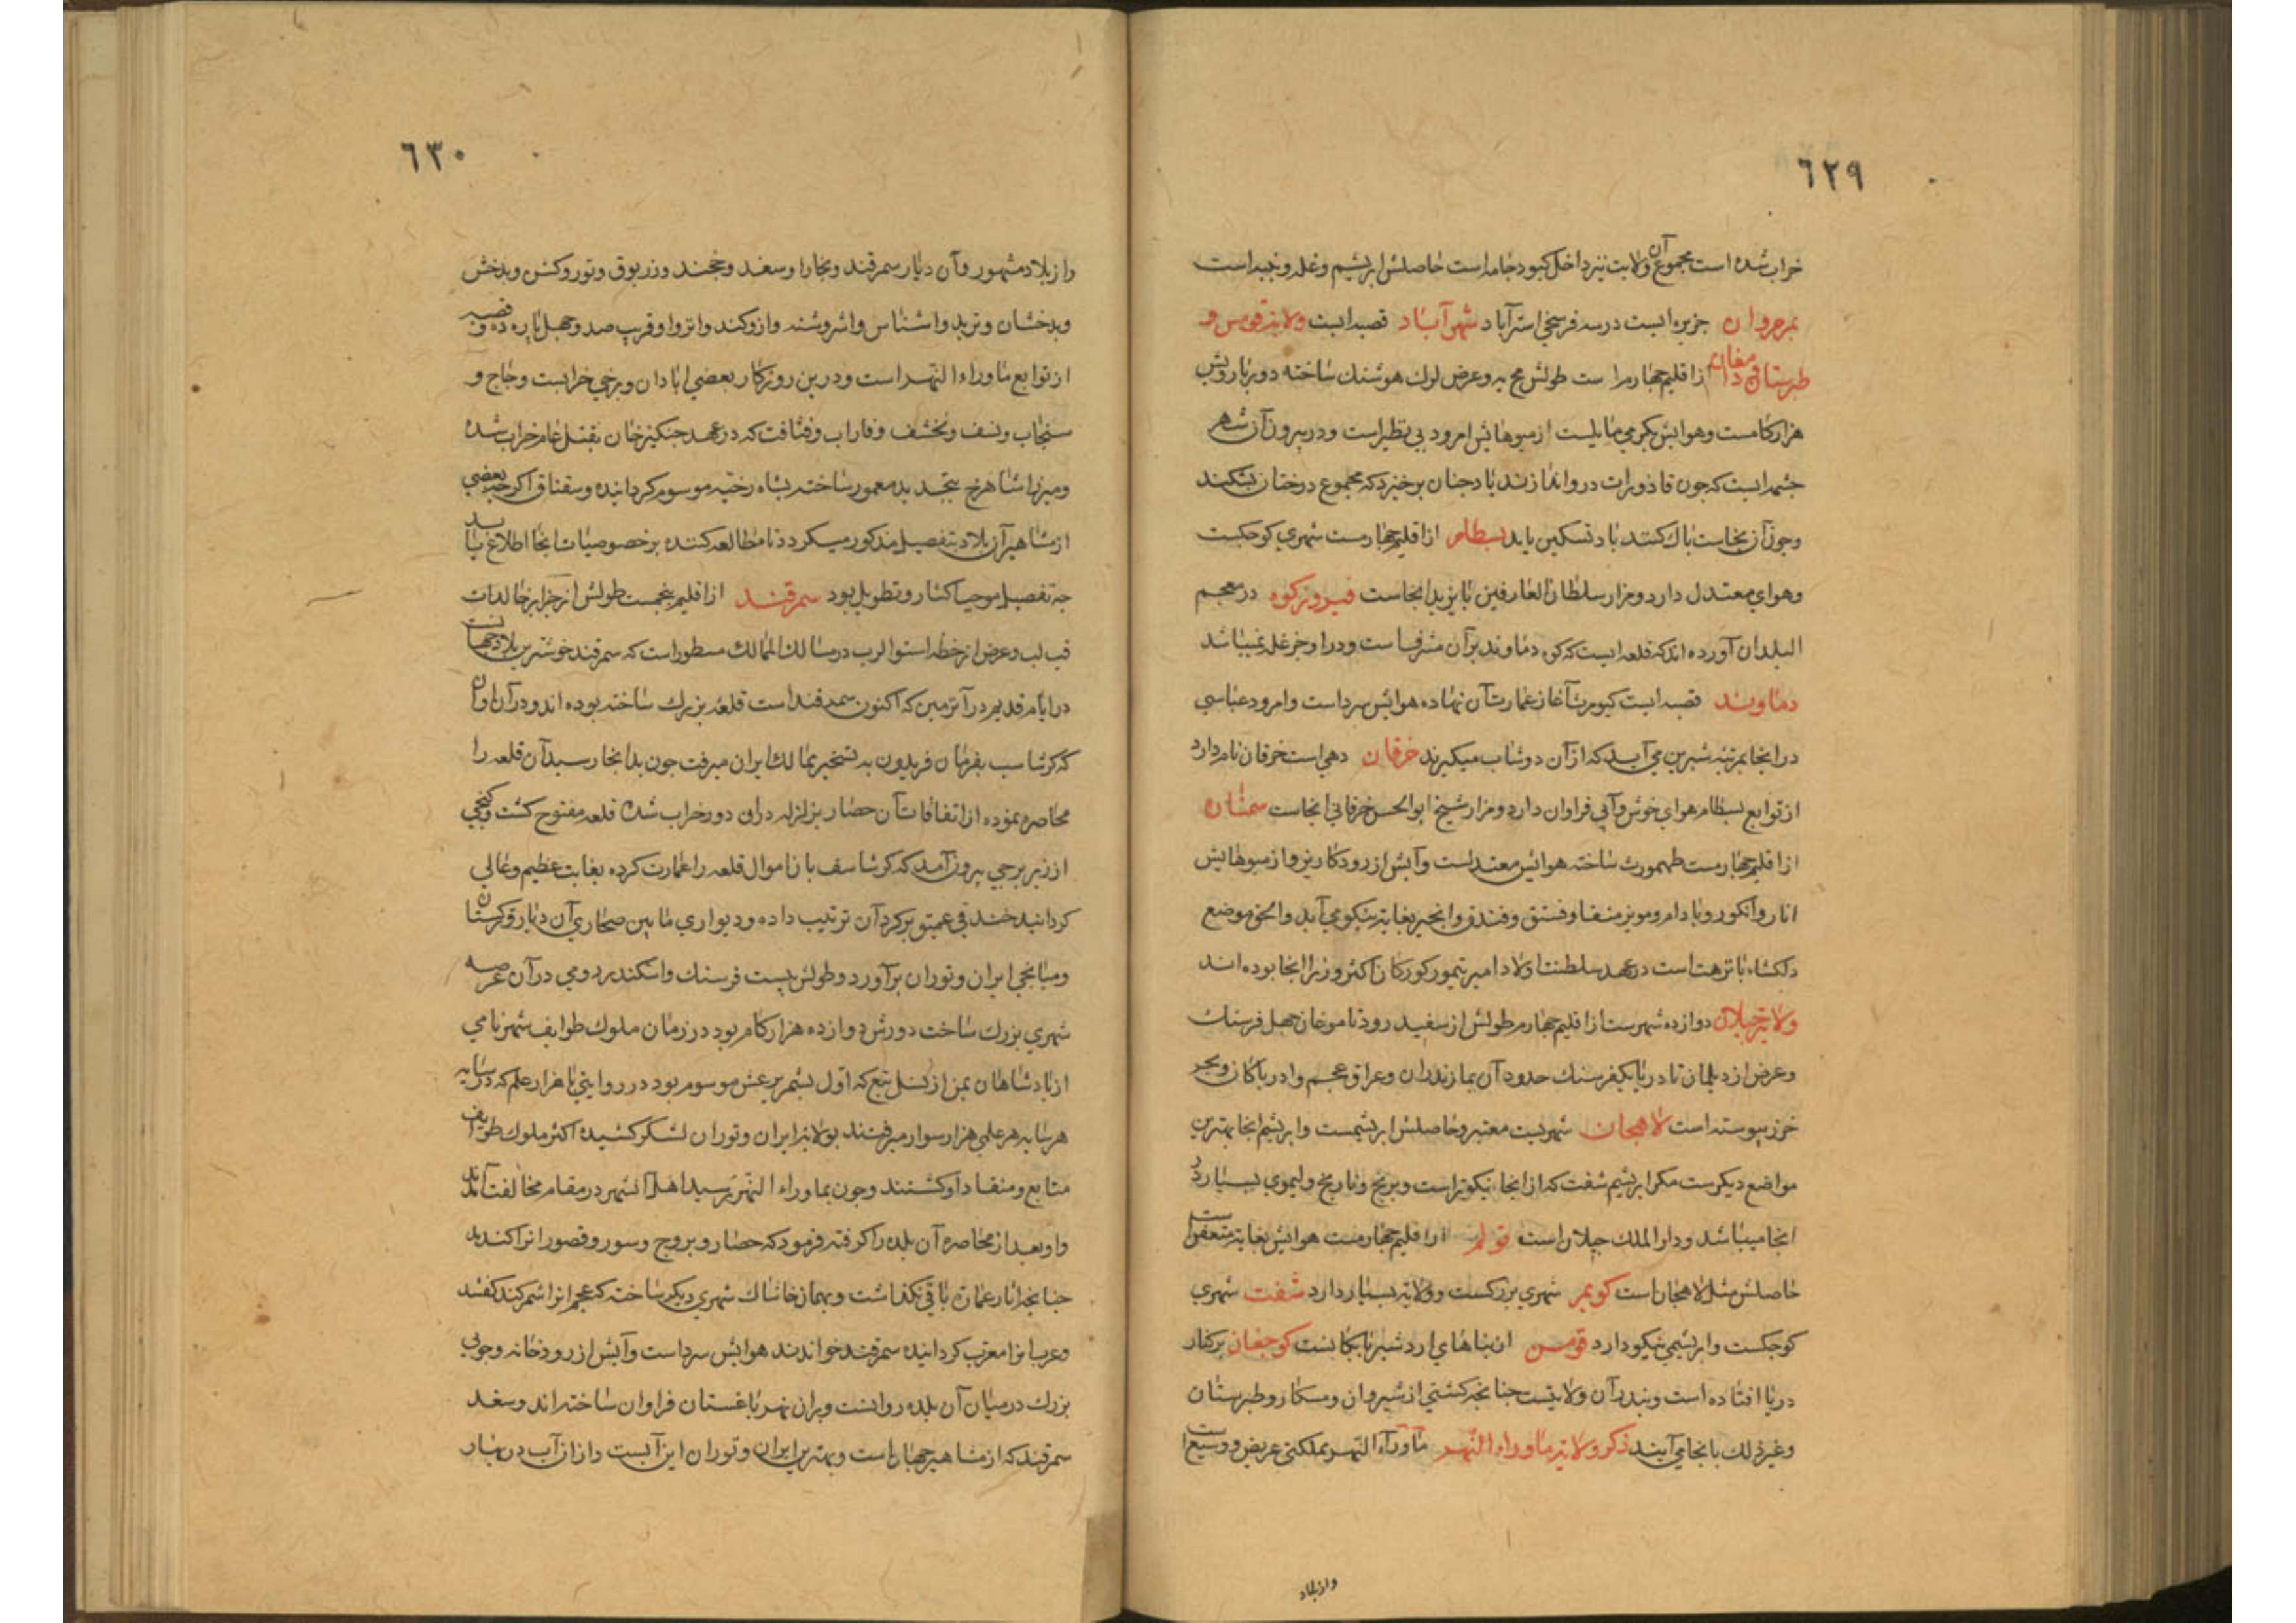 ٦٢٩
خراب شده است مجموع آن ولایت نیز داخل کبود جامه است حاصلش ابریشم و غله و پنبه است
جزیره ایست در سه فرسخی استرآباد شهرآباد قصبه ایست ولایة قومس و
طبرستان دامغان از اقلیم چهارم است طولش مح یه و عرض لول هوشنك ساخته دور بارویش
هزار کامست و هوایش بکرمی مایلست از میوهایش امرود بی نظیر است و در بیرون آن شهر
چشمه ایست که چون قاذورات در و اندازند باد چنان برخیزد که مجموع درختان بشکند
و چون آن نجاست پاك کنند باد تسکین یابد بسطام از اقلیم چهارمست شهری کوچکست
و هوای معتدل دارد و مزار سلطان العارفین بایزید انجاست فیروزکوه در معجم
البلدان آورده اند که قلعه ایست که کوه دماوند بر آن مشرفست و در او جز غله نمیباشد
دماوند قصبه ایست کیومرث آغاز عمارت آن نهاده هوایش سرد است و امرود عباسی
در انجا بمرتبه شیرین می آید که از آن دوشاب میکیرند خرقان دهی است خرقان نام دارد
از توابع بسطام هوای خوش و آبی فراوان دارد و مزار شیخ ابو الحسن خرقانی انجاست سمنان
از اقلیم چهارمست طهمورث ساخته هوایش معتدلست و آبش از رود کاریز و از میوهایش
انار و انکور و بادام و مویز منقا و فستق و فندق و انجیر بغایة نیکو می آید والحق موضع
دلکشاء با نزهت است در عهد سلطنت اولاد امیر تیمور کورکان اکثر وزرا انجا بوده اند
ولایة جیلان دوازده شهرست از اقلیم چهارم طولش از سفید رود تا موخان چهل فرسنك
و عرض از دیلمان تا دریا یکفرسنك حدود آن بمازندران و عراق عجم و ادربایکان و بحر
خزر پیوسته است لاهجان شهریست معتبر و حاصلش ابریشمست و ابریشم انجا بهترین
مواضع دیکرست مکر ابریشم شفت که از انجا نیکوتر است و برنج و نارنج و لیموی بسیار در
انجا میباشد و دار الملك جیلان است تولم از اقلیم چهارمست هوایش بغایة متعفن است
حاصلش مثل لاهجان است کویم شهری بزرکست و ولایة بسیار دارد شفت شهری
کوچکست و ابریشمی نیکو دارد قومس از بناهای اردشیر بابکانست کوجفان بر کنار
دریا افتاده است و بندر آن ولایتست چنانچه کشتی از شیروان و مسکار و طبرستان
و غیر ذلك بانجا می آیند ذکر ولایة ماوراء النهر ماوراء النهر مملکتی عریض و وسیع است
وازبلاد
٦٣٠
وازبلاد مشهور و آن دیار سمرقند و بخارا و سغد و خجند و زربوق و توروکش و بدخش
و بدخشان و ترمد و اشناس و اشروشنه و ازوکند و اترار و قریب صد و چهل پاره ده و قصبه
از توابع ماوراء النهر است و درین روزکار بعضی آبادان و برخی خرابست و چاج و
سنجاب و نسف و نخشف و فاراب و فنافت که در عهد چنکیز خان بقتل عام خراب شده
و میرزا شاهرخ بتجدید معمور ساخته بشاه رخیه موسوم کردانیده و سقناق اکر چه بعضی
از مشاهیر آن بلاد بتفصیل مذکور میکردد تا مطالعه کننده بر خصوصیات انجا اطلاع یابد
چه تفصیل موجب اکثار و تطویل بود سمرقند از اقلیم پنجمست طولش از جزایر خالدات
قب لب و عرض از خط استوا لرب در مسالك الممالك مسطور است که سمرقند خوشترین بلاد جهانست
در ایام قدیم در آن زمین که اکنون سمرقند است قلعه بزرك ساخته بوده اند و در آن اوان
که کرشاسب بفرمان فریدون به تسخیر ممالك ایران میرفت چون بدانجا رسید آن قلعه را
محاصره نموده از اتفاقات آن حصار بزلزله در آن دور خراب شد قلعه مفتوح کشت و کنجی
از زیر برجی بیرون آمد که کرشاسف بان اموال قلعه را عمارت کرده بغایت عظیم و عالی
کردانید خندقی عمیق بر کرد آن ترتیب داده و دیواری مابین صحاری آن دیار و ترکستان
و میانجی ایران و توران بر آورد و طولش بیست فرسنك و اسکندر رومی در آن عرصه
شهری بزرك ساخت دورش دوازده هزار کام بود در زمان ملوك طوایف شهر نامی
از پادشاهان یمن از نسل تبع که اول بشمر یرعش موسوم بود در روایتی با هزار علم که در سایه
هر سایه هر علمی هزار سوار میرفتند بولایة ایران و توران لشکر کشیده اکثر ملوك طوایف
متابع و منقاد او کشتند و چون بماوراء النهر رسید اهل آن شهر در مقام مخالفت آمدند
و او بعد از محاصره آن بلده را کرفته فرمود که حصار و بروج و سور و قصور انرا کندند
چنانچه از آثار عمارة باقی نکذاشت و بهمان خاشاك شهری دیکر ساخته که عجم انرا شمرکند کفتند
و عرب انرا معرب کردانیده سمرقند خواندند هوایش سرد است و آبش از رودخانه و جویی
بزرك در میان آن بلده روانست و بران نهر باغستان فراوان ساخته اند و سغد
سمرقند که از مشاهیر جهانست و بهترین ایران و توران این آبست و از آن آب در بهار